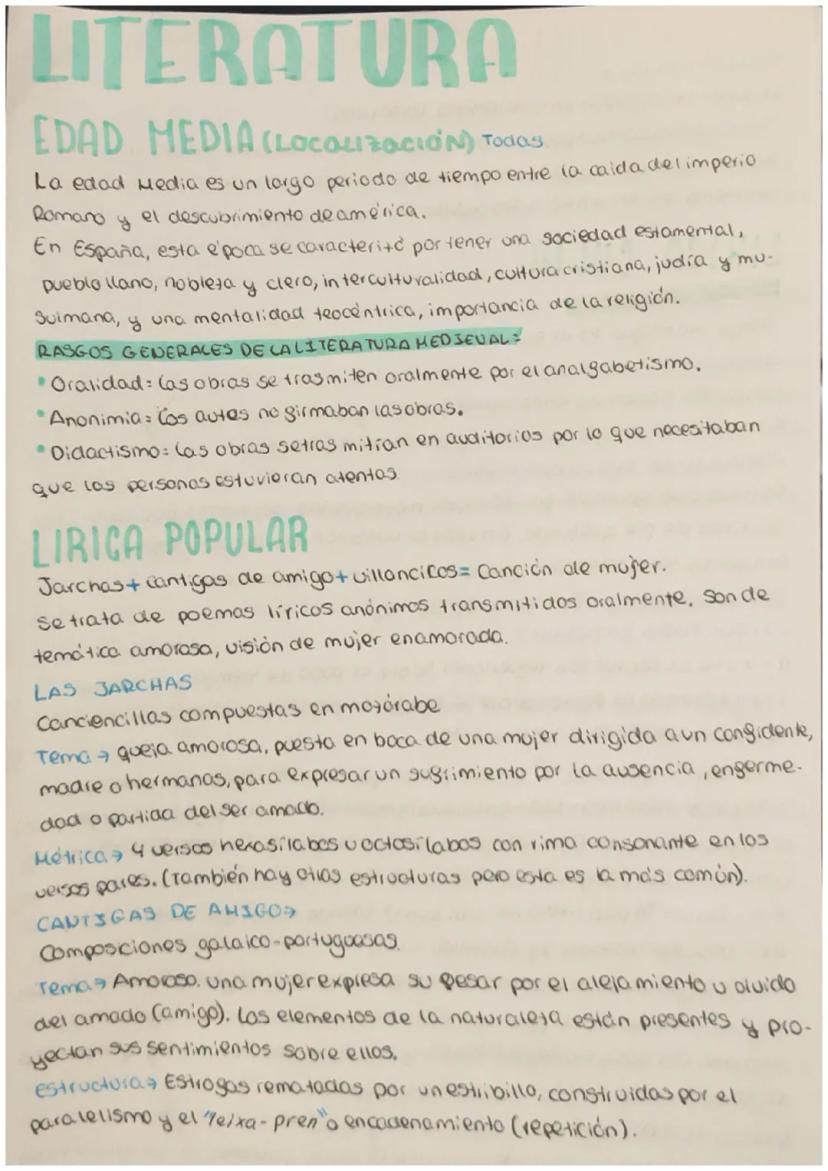 LITERATURA
EDAD MEDIA (LOCALIZACIÓN) Todas
La edad Media es un largo periodo de tiempo entre la caida del imperio
Romano y el descubrimiento de america.
En España, esta época se caracterizó por tener una sociedad estamental,
pueblo llano, nobleza y clero, interculturalidad, cultura cristiana, judía y mu-
sulmana, y una mentalidad teocéntrica, importancia de la religión.
RASGOS GENERALES DE LA LITERATURA MEDIEVAL:
• Oralidad: las obras se trasmiten oralmente por el analfabetismo.
• Anonimia: los autes no firmaban las obras.
• Didactismo: las obras se trasmitian en auditorios por lo que necesitaban
que las personas estuvieran atentas.
LIRICA POPULAR
Jarchas + cantigas de amigo + villancicos = Canción de mujer.
Se trata de poemas líricos anónimos transmitidos oralmente. Son de
temática amorosa, visión de mujer enamorada.
LAS JARCHAS
Canciencillas compuestas en mozárabe
Tema → queja amorosa, puesta en boca de una mujer dirigida a un confidente,
madre o hermanas, para expresar un sufrimiento por la ausencia, enferme-
dad o partida del ser amado.
Métrica → 4 versos hexasílabos u octosílabos con rima consonante en los
versos pares. (También hay otras estructuras pero esta es la más común).
CANTIGAS DE AMIGO →
Composiciones galaico-portuguesas.
Tema → Amoroso. una mujer expresa su pesar por el alejamiento u olvido
del amado (amigo). Los elementos de la naturaleza están presentes y pro-
yectan sus sentimientos sobre ellos.
Estructura → Estrofas rematadas por un estribillo, construidas por el
paralelismo y el "leixa-pren" o encadenamiento (repetición).